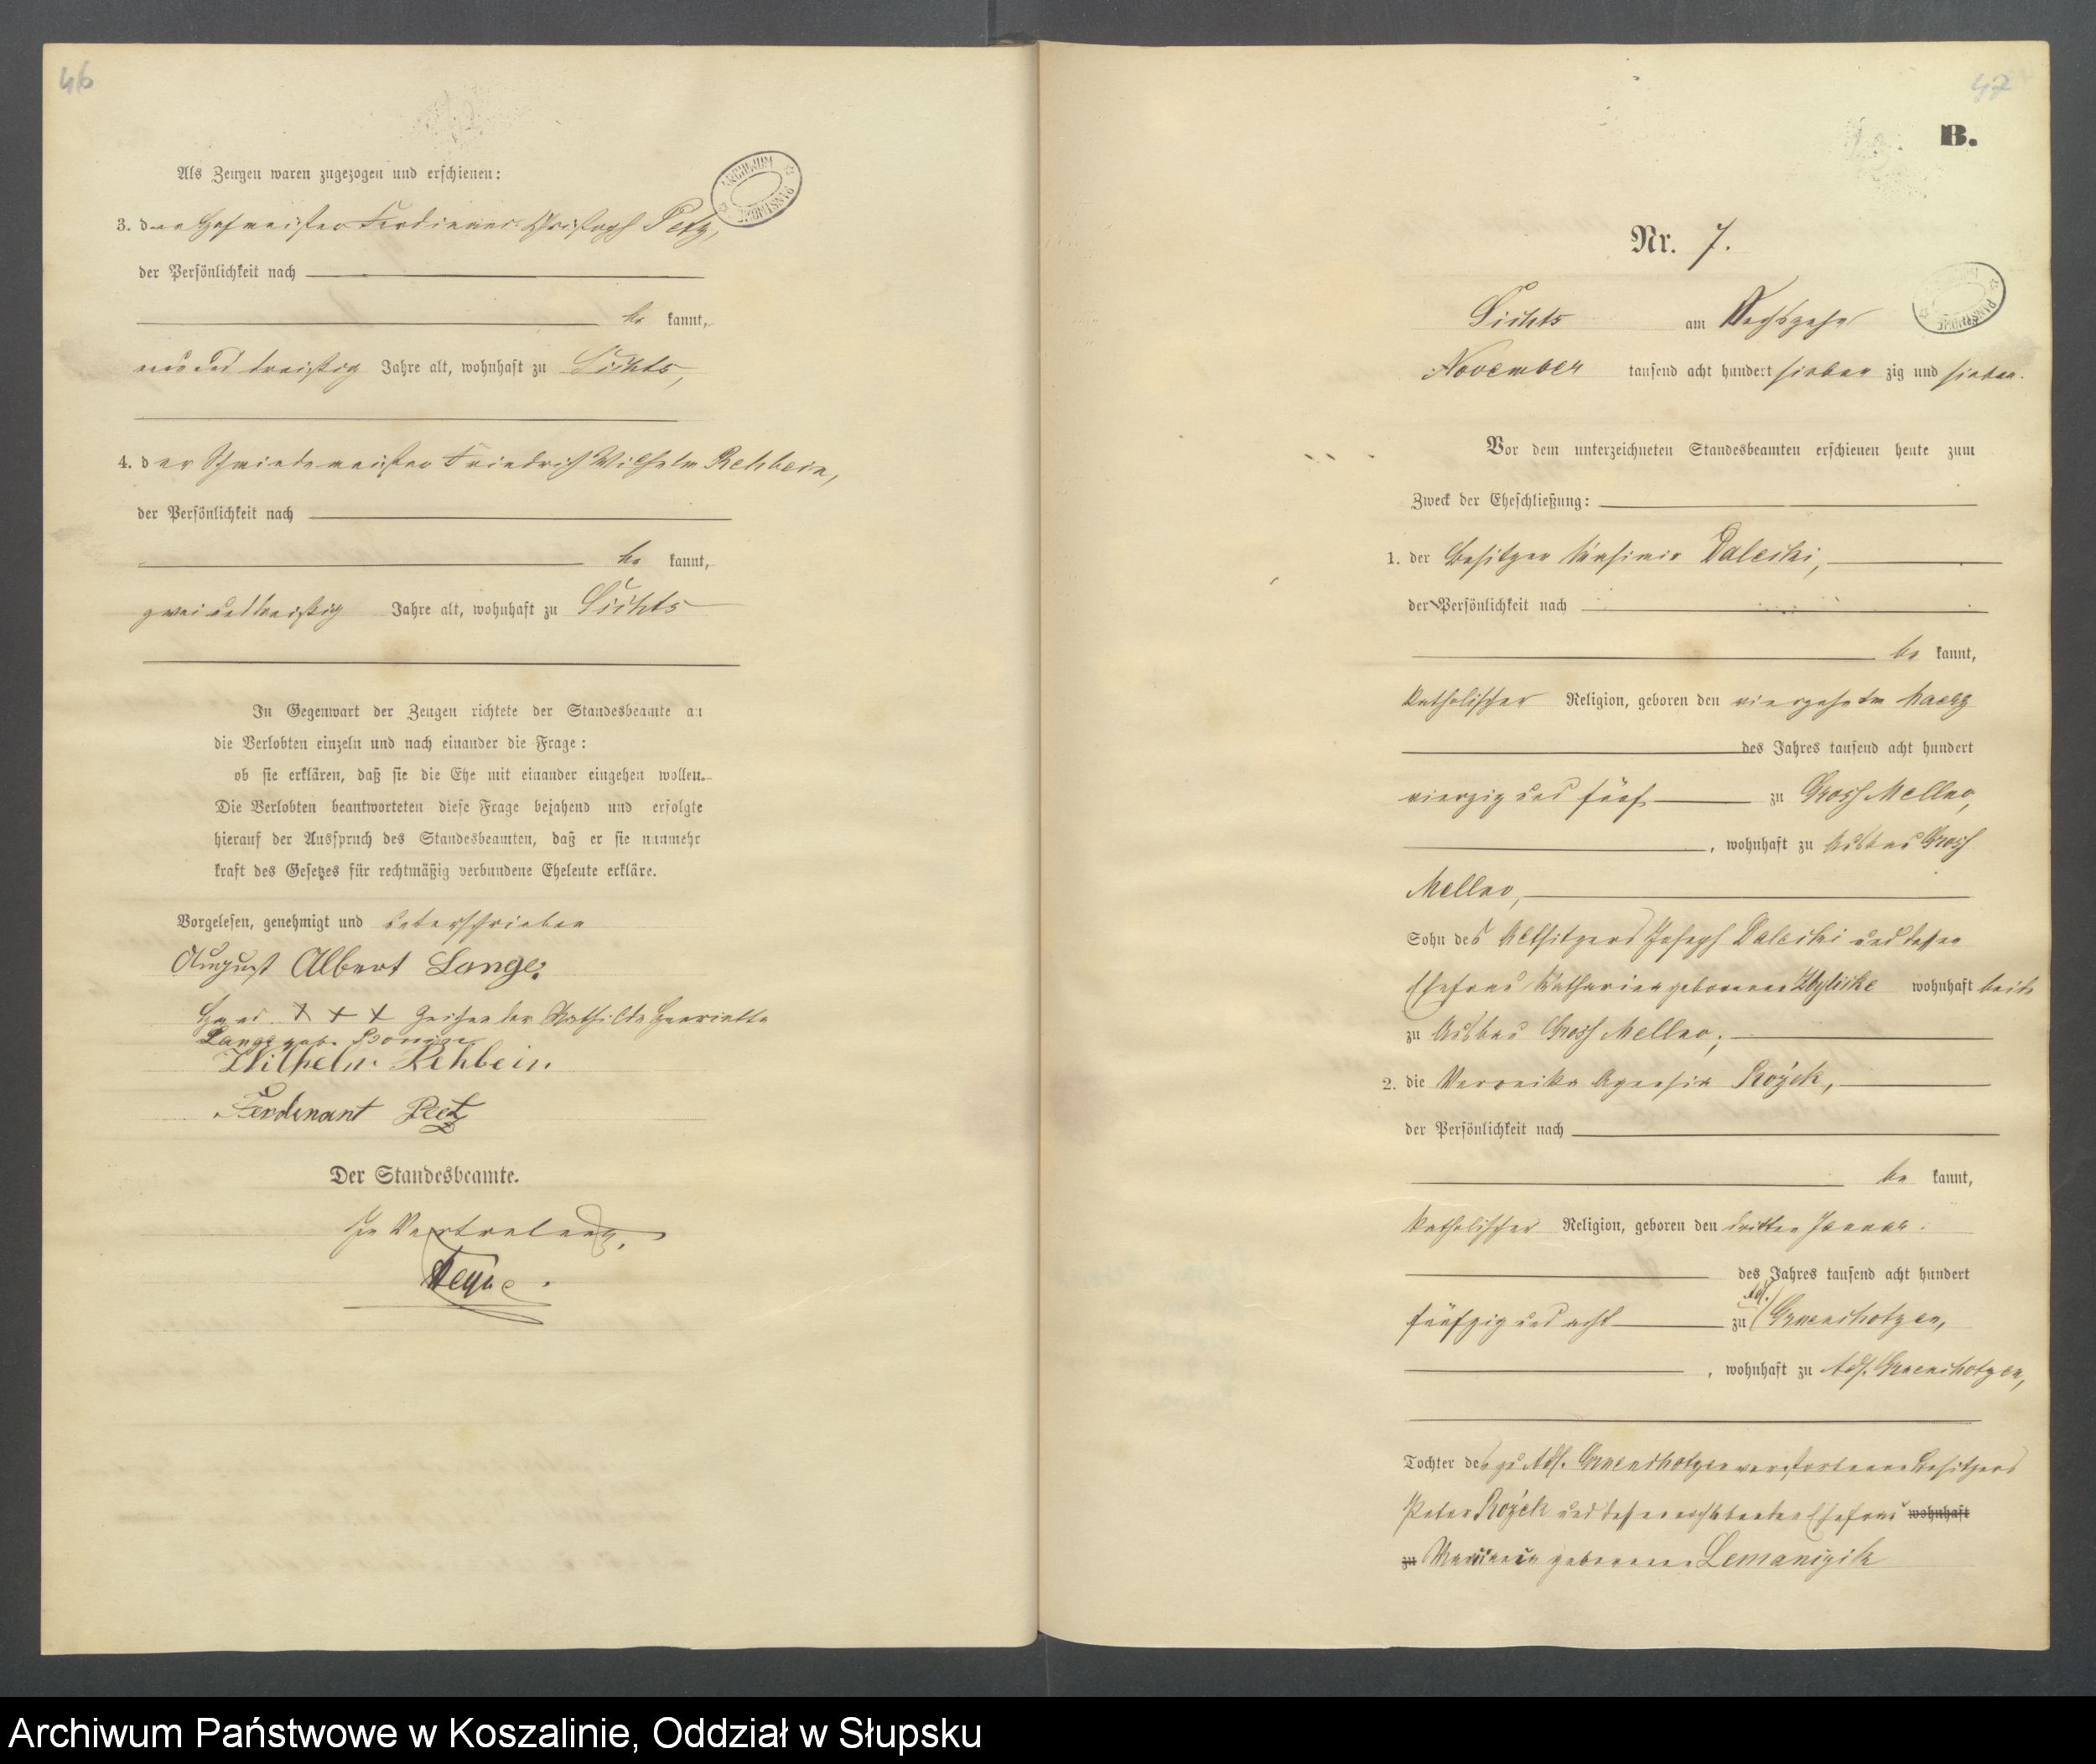 46
Als Zeugen waren zugezogen und erschienen:
ARCHIWUM PAŃSTWOWE
3. der Hofmeister Ferdinand Christoph Petz,
der Persönlichkeit nach
be kannt,
und dreißig Jahre alt, wohnhaft zu
4. der Schmiedemeister Friedrich Wilhelm Rehbein,
der Persönlichkeit nach
be kannt,
zwei und dreißig Jahre alt, wohnhaft zu
In Gegenwart der Zeugen richtete der Standesbeamte an
die Verlobten einzeln und nach einander die Frage:
ob sie erklären, daß sie die Ehe mit einander eingehen wollen.
Die Verlobten beantworteten diese Frage bejahend und erfolgte
hierauf der Ausspruch des Standesbeamten, daß er sie nunmehr
kraft des Gesetzes für rechtmäßig verbundene Eheleute erkläre.
Vorgelesen, genehmigt und unterschrieben
August Albert Lange.
Hand + + + Zeichen der Mathilde Henriette
Lange geb. Bonin
Wilhelm Rehbein.
Ferdinant Petz
Der Standesbeamte.
In Vertretung.
47
B.
Nr. 7.
am Sechszehn
November tausend acht hundert sieben zig und sieben.
Vor dem unterzeichneten Standesbeamten erschienen heute zum
Zweck der Eheschließung:
1. der Besitzer Casimir Dalecki,
der Persönlichkeit nach
be kannt,
katholischer Religion, geboren den vierzehnten Maerz
des Jahres tausend acht hundert
vierzig und fünf zu Gross Mellno,
, wohnhaft zu Ausbau Gross
Mellno,
Sohn des Altsitzers Joseph Dalecki und dessen
Ehefrau Katharina geborenen wohnhaft beide
zu Ausbau Gross Mellno,
2. die Veronika Rożek,
der Persönlichkeit nach
be kannt,
katholischer Religion, geboren den dritten Januar
des Jahres tausend acht hundert
fünfzig und acht zu Adl.
, wohnhaft zu Adl.
Tochter des zu Adl. verstorbenen Besitzers
Peter Rożek und dessen Ehefrau wohnhaft
zu Marianna geborenen
Archiwum Państwowe w Koszalinie, Oddział w Słupsku